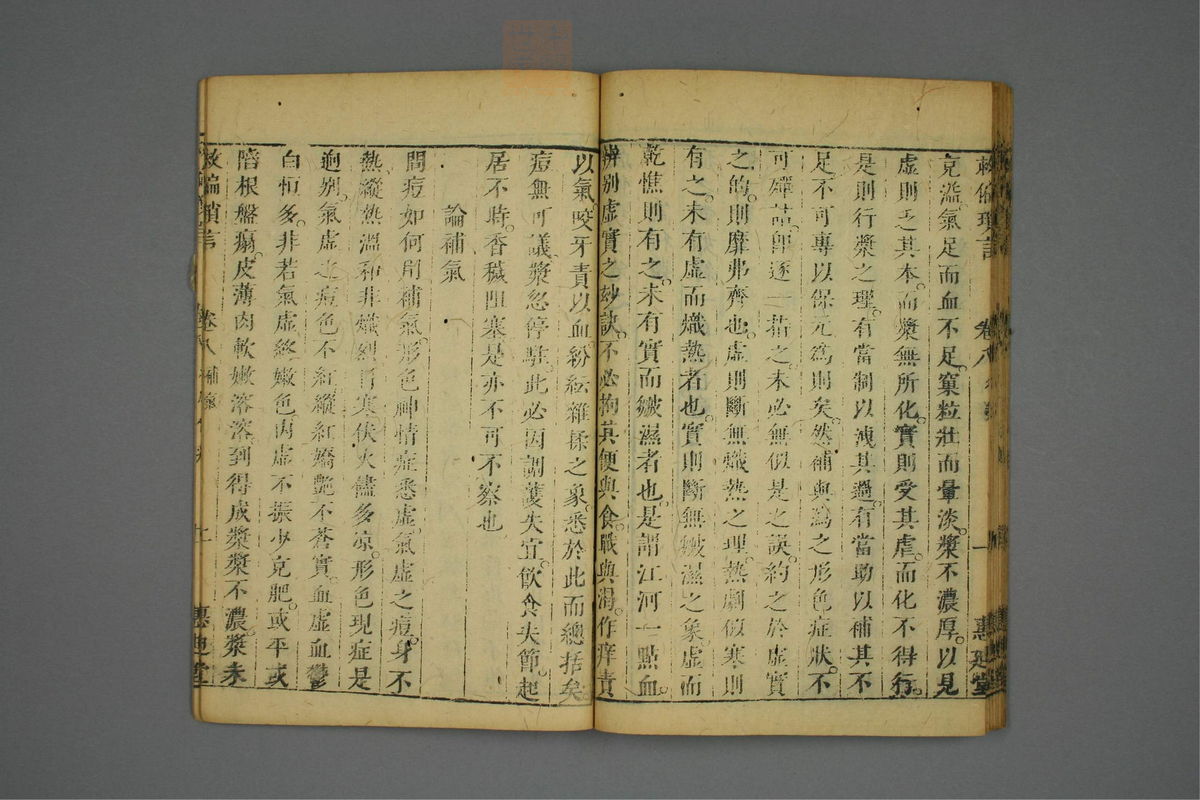 救偏瑣言 卷八 惠迪堂
充溢氣足而血不足窠粒壯而暈淡漿不濃厚以見
虛則乏其本而漿無所化實則受其虐而化不得行
是則行漿之理有當制以洩其過有當助以補其不
足不可專以保元為則矣然補與瀉之形色症狀不
可殫詰即逐一指之未必無似是之訣約之於虛實
之的則靡弗齊也虛則斷無熾熱之理熱劇假寒則
有之未有虛而熾熱者也實則斷無皴濕之象虛而
乾憔則有之未有實而皴濕者也是謂江河一點血
辨別虛實之妙訣不必拘其便與食職與渴作痒責
以氣咬牙責以血紛紜雜揉之象悉於此而總括矣
痘無可議漿忽停駐此必因調護失宜飲食失節起
居不時香穢阻塞是亦不可不察也
論補氣
問痘如何用補氣形色神情症悉虛氣虛之痘身不
熱縱熱溫和非熾烈胃寒伏火儘多凉形色現症是
迥别氣虛之痘色不紅縱紅嬌艷不蒼實血虛血鬱
白恒多非若氣虛終嫩色肉虛不振少克肥或平或
陷根盤塌皮薄肉軟嫩溶溶到得成漿漿不濃漿未
救偏瑣言 卷八 補 惠迪堂